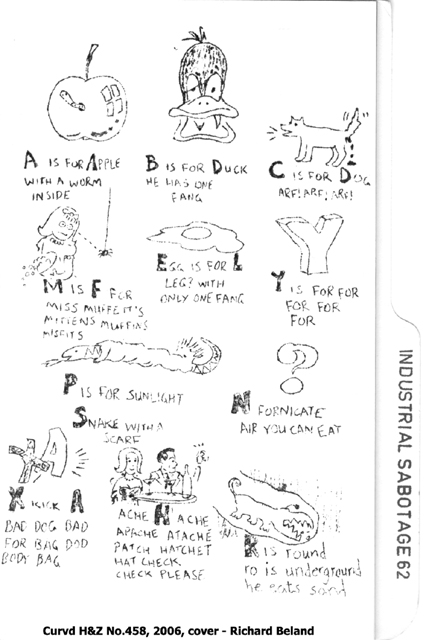 A IS FOR APPLE
WITH A WORM
INSIDE
B IS FOR DUCK
HE HAS ONE
FANG
C IS FOR DOG
ARF! ARF! ARF!
M IS F FOR
MISS MUFFETT'S
MITTENS MUFFINS
MISFITS
EGG IS FOR L
LEG? WITH
ONLY ONE FANG
Y IS FOR FOR
FOR FOR FOR
FOR
P IS FOR SUNLIGHT
SNAKE WITH A
SCARF
N FORNICATE
AIR YOU CAN EAT
K KICK A
BAD DOG BAD
FOR BAG DOD
BODY BAG
ACHE H ACHE
APACHE ATACHÉ
PATCH HATCHET
HAT CHECK
CHECK PLEASE
R IS round
ro is underground
he eats sand
INDUSTRIAL SABOTAGE 62
Curvd H&Z No.458, 2006, cover - Richard Beland